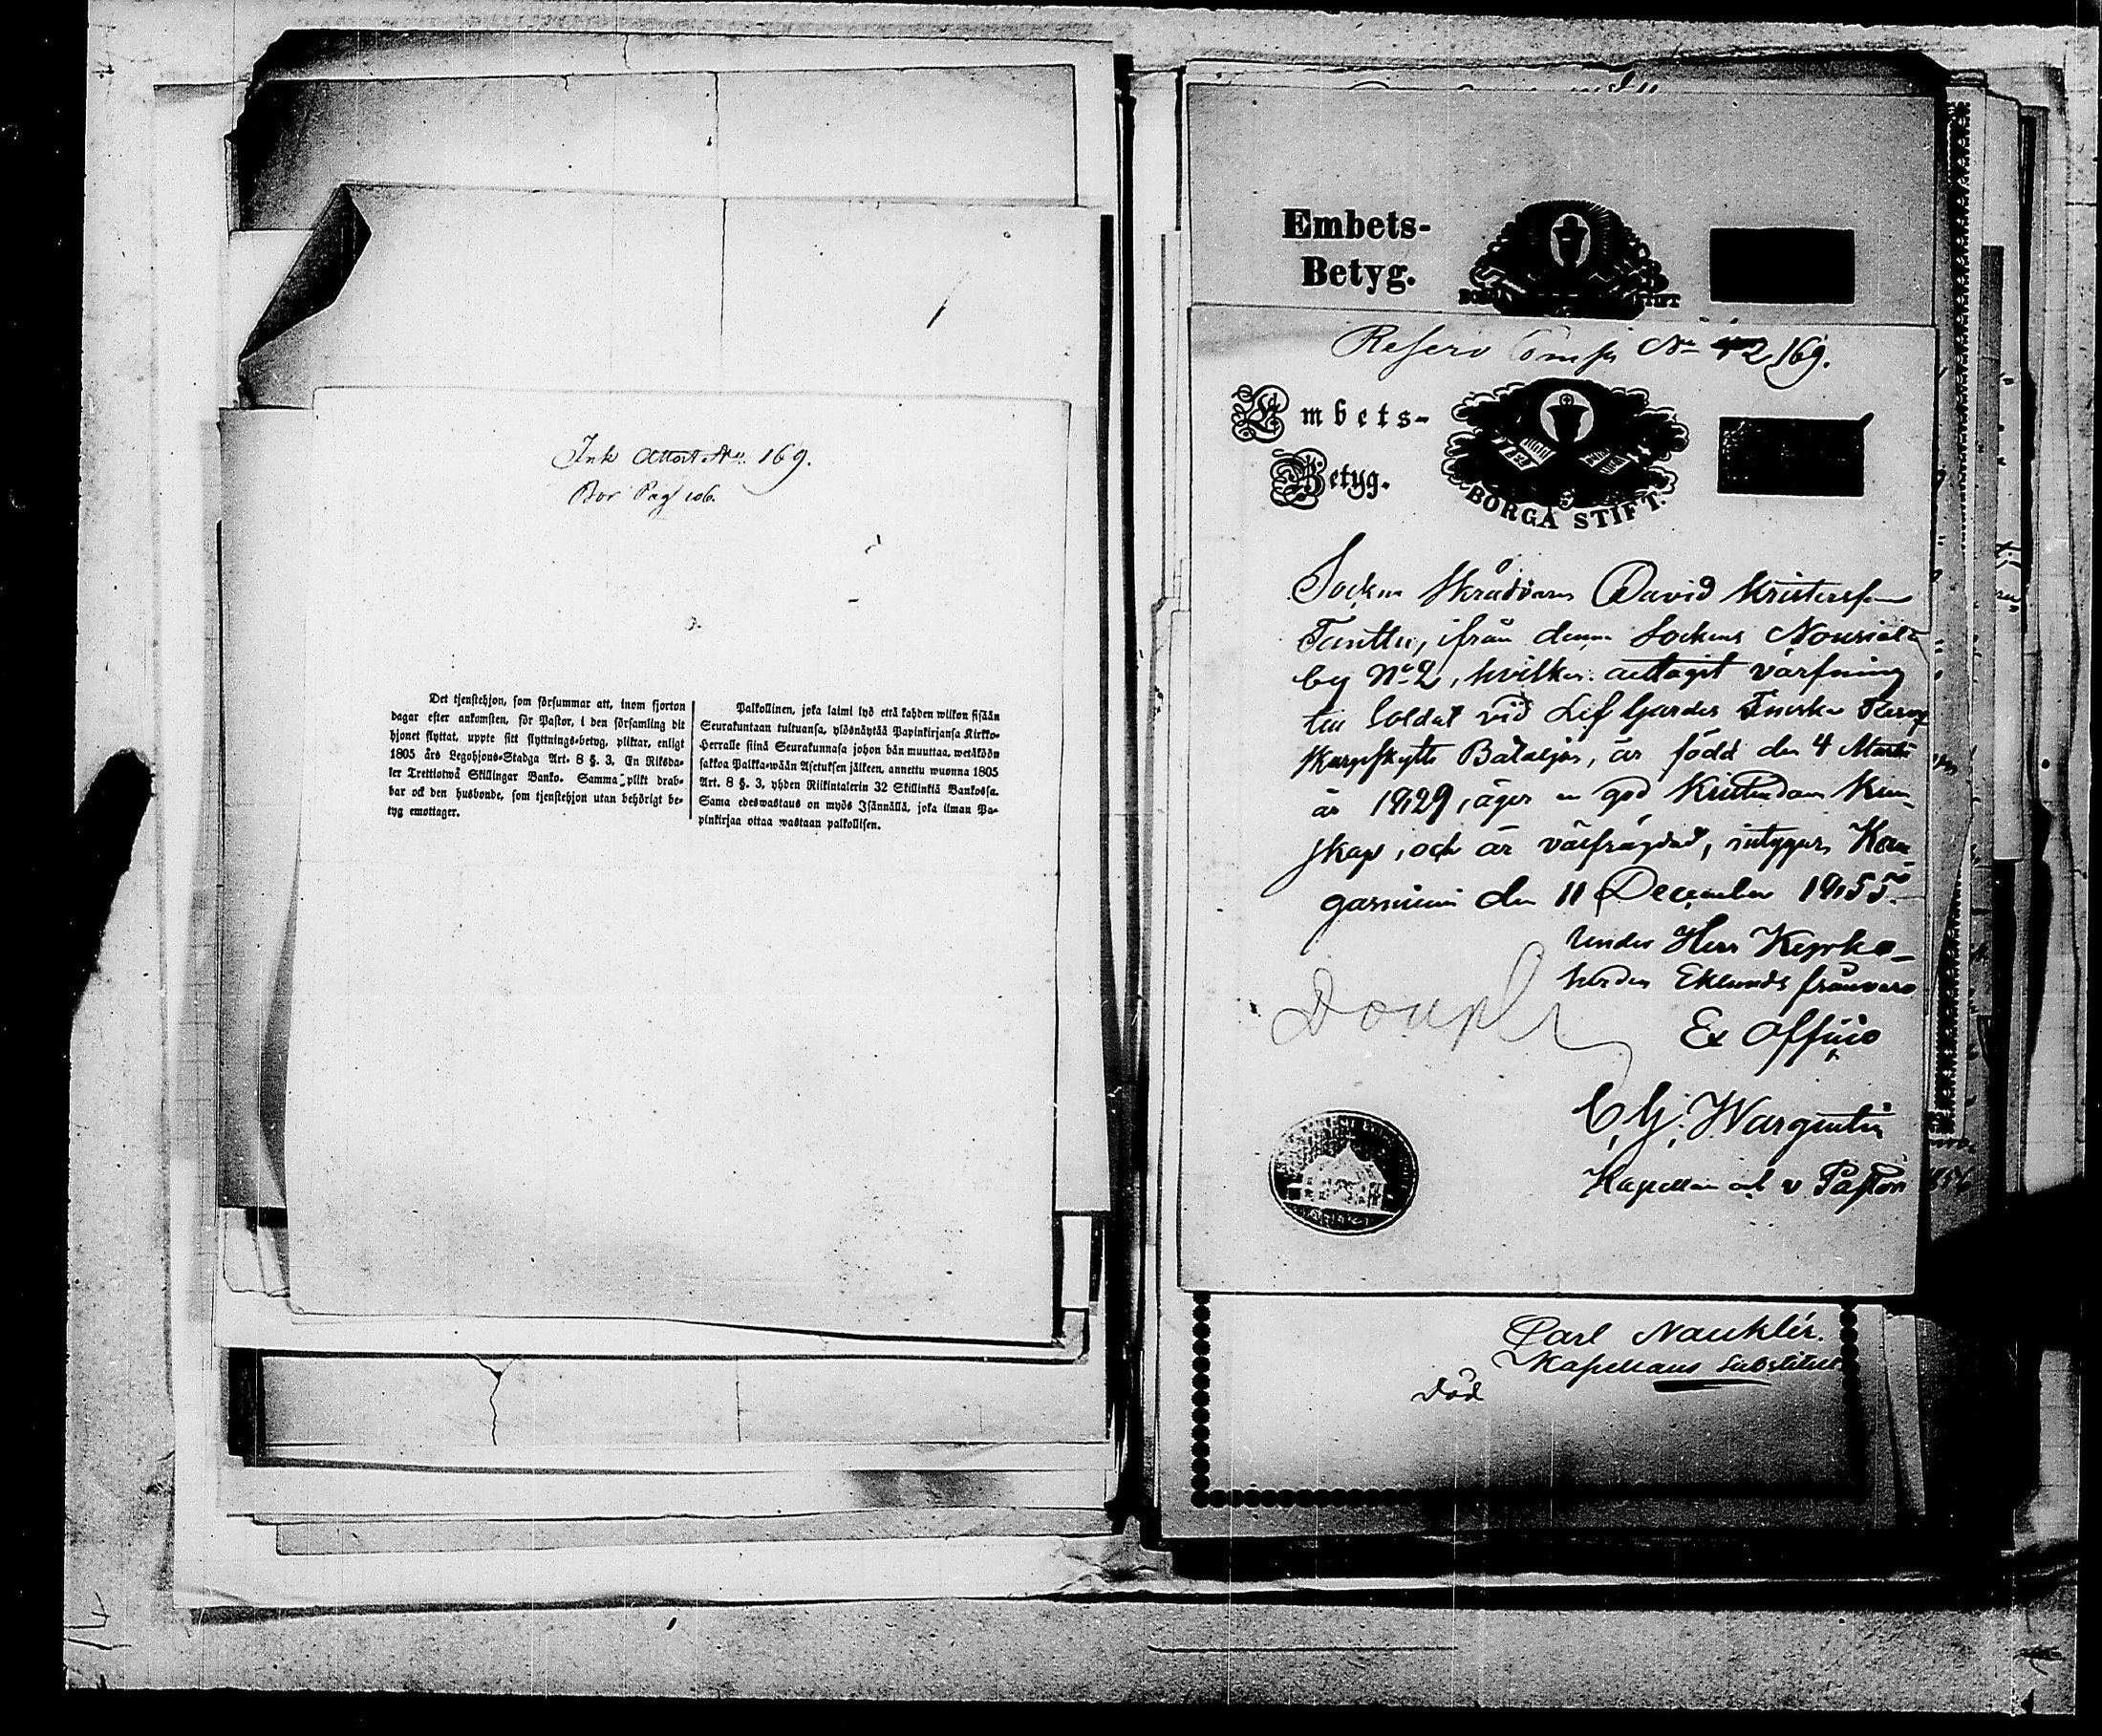 Ink Attest No. 169.
Bor Pag 106.
Det tjenstehjon, som försummar att, inom fjorton
dagar efter ankomsten, för Pastor, i den församling dit
hjonet flyttat, uppte sitt flyttnings-betyg, pliktar, enligt
1805 års Legohjons-Stadga Art. 8 §. 3, En Riksda-
ler Trettiotwå Skillingar Banko. Samma plikt drab-
bar ock den husbonde, som tjenstehjon utan behörigt be-
tyg emottager.
Palkollinen, joka laimi lyö että kahden wiikon sisään
Seurakuntaan tultuansa, ylösnäytää Papinkirjansa Kirkko-
Herralle siinä Seurakunnasa johon hän muuttaa, wetäköön
sakkoa Palka-wään Asetuksen jälkeen, annettu wuonna 1805
Art. 8 §. 3, yhden Riikintalerin 32 Skillinkiä Bankossa.
Sama edeswastaus on myös Isännällä, joka ilman Pa-
pinkirjaa ottaa wastaan palkollisen.
Embets-
Betyg.
BORGÅ STIFT
Reserv Comp No 169.
Embets-
Betyg.
BORGÅ STIFT.
Sockne Skräddaren David Kristersson
Tanttu, ifrån denna Sockens Nousiala
by No 2, hvilken antagit värfning
till Soldat vid Lif Gardes Finska
Skarpskytte Bataljon, är född den 4 Martii
år 1829, äger en god Kristendoms Kun-
skap, och är välfrägdad, intygar, Kan-
gasniemi den 11 December 1855.
Under Herr Kyrko-
herden Eklunds frånvaro
Ex Officio
C. G. Wargentin
Kapellan och v Pastor
Doupl
Carl Nauklér.
Kapellans Substitut
död